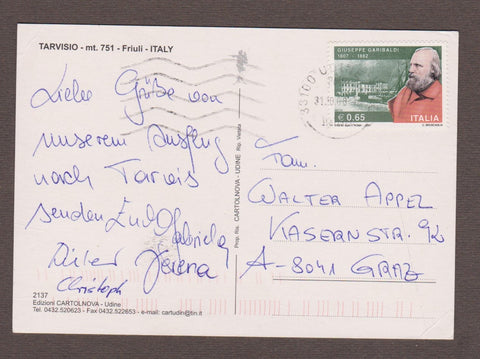 TARVISIO - mt. 751 - Friuli - ITALY
GIUSEPPE GARIBALDI
1807 - 1882
€ 0.65
ITALIA
33100
Liebe Grüße von
unserem Ausflug
nach Tarvis
senden Euch Gabriela
Dieter Verena
Christoph
Fam.
WALTER APPEL
KASERNSTR. 92
A-8041 GRAZ
Prop. Ris. CARTOLNOVA - UDINE Rip. Vietata
2137
Edizioni CARTOLNOVA - Udine
Tel. 0432.520623 - Fax 0432.522653 - e-mail: cartudin@tin.it